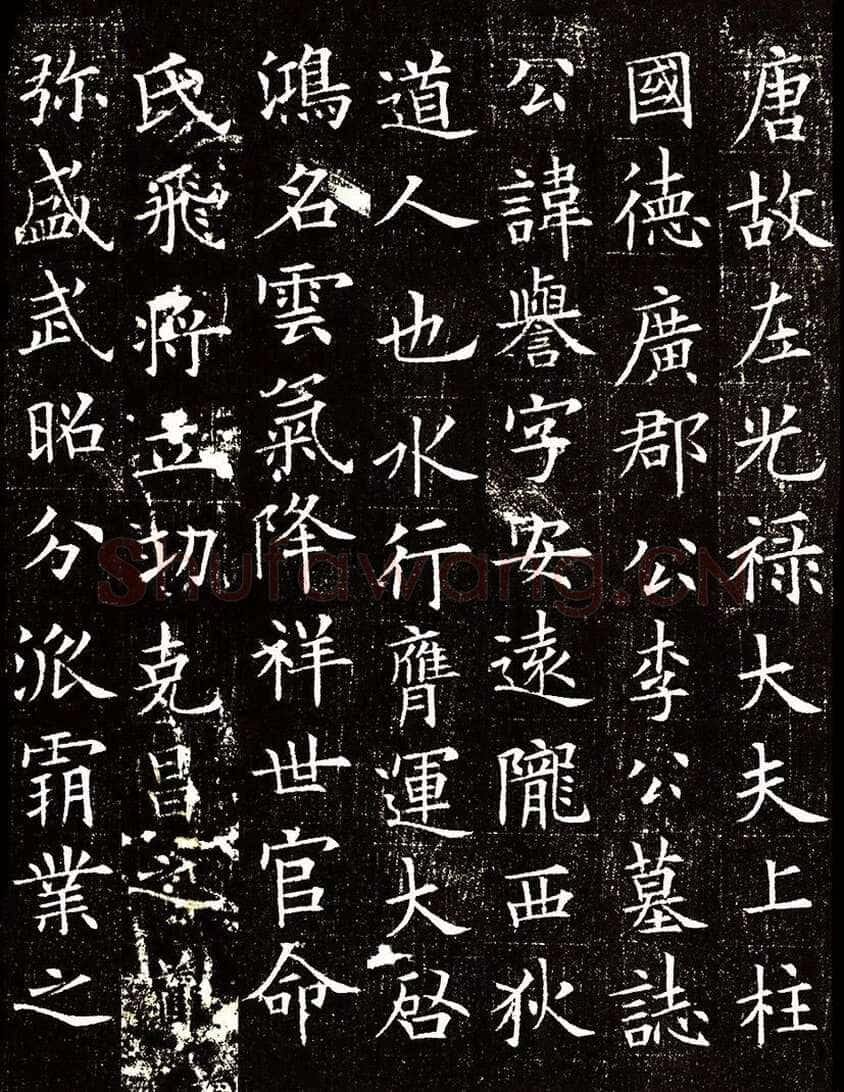 唐故左光禄大夫上柱
國德廣郡公李公墓誌
公諱譽字安遠隴西狄
道人也水行膺運大启
鴻名雲氣降祥世官命
氏飛將立功克昌
弥盛武昭分派霸業之
Shufawang.CN